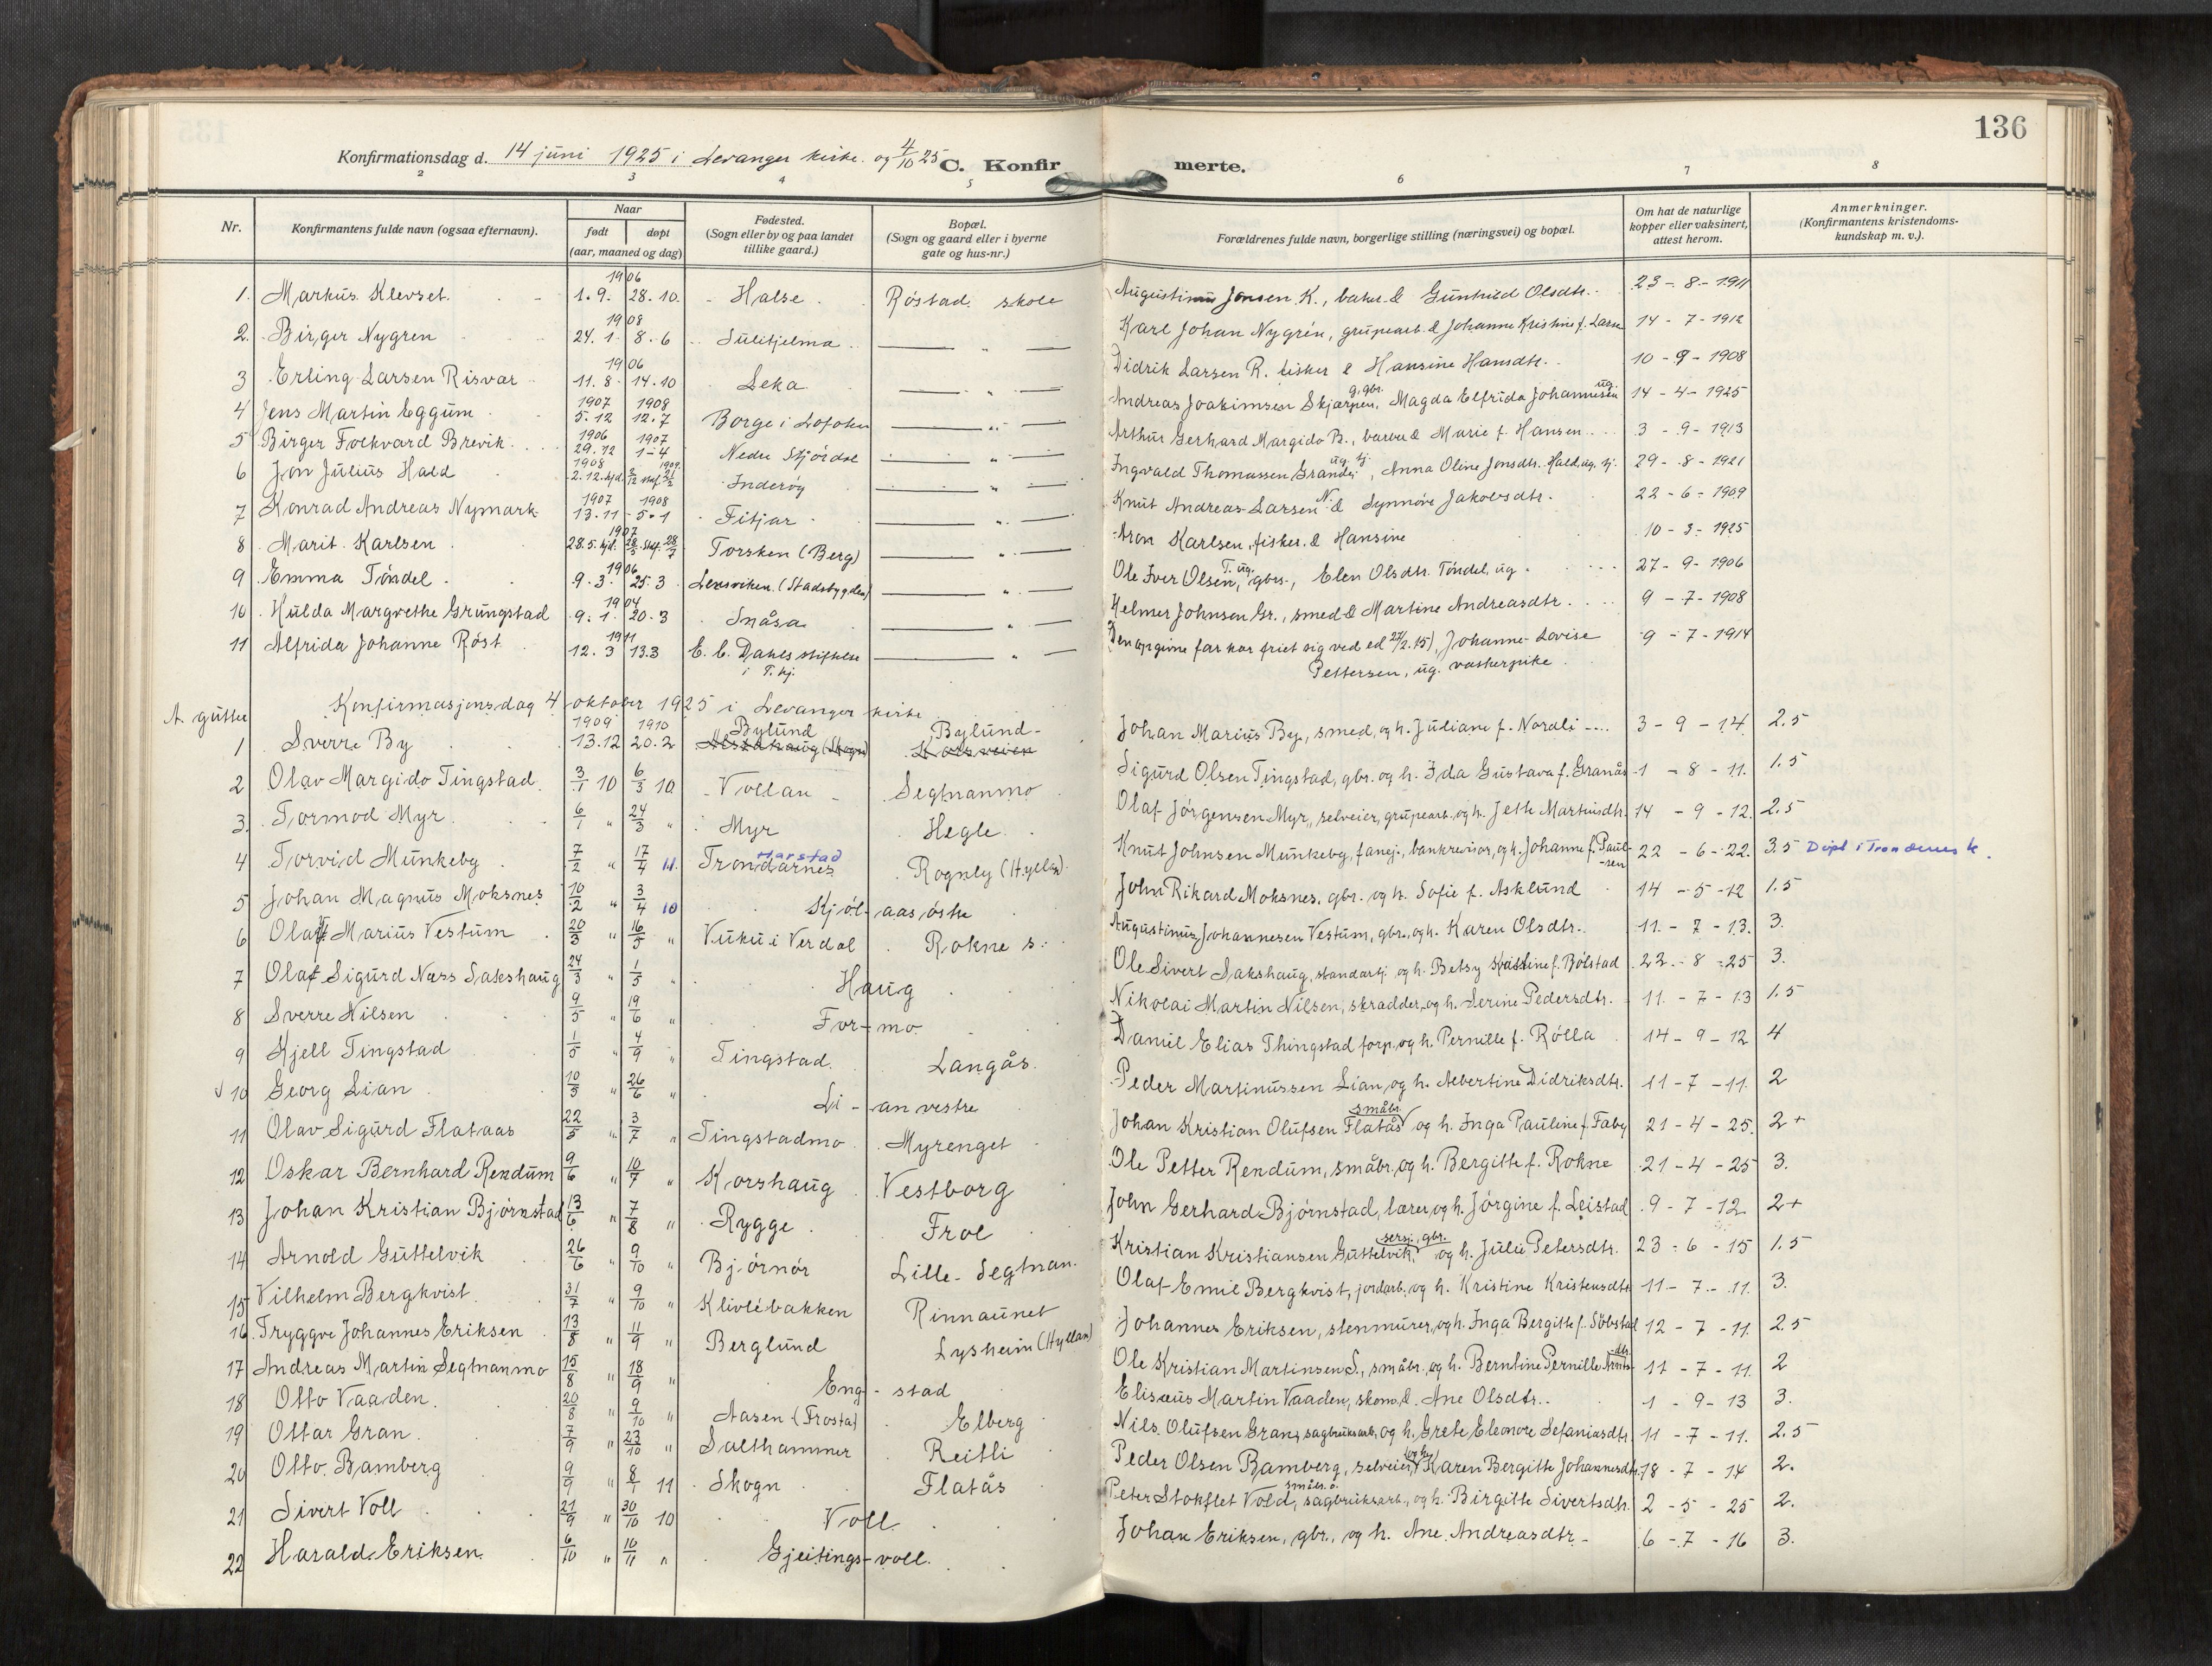 136
Konfirmationsdag d. 14 juni 1925 i Levanger kirke. og 4/10 25 C. Konfir merte.
2 3 4 5 6 7 8
Nr. Konfirmantens fulde navn (ogsaa efternavn). Naar født døpt (aar, maaned og dag) Fødested. (Sogn eller by og paa landet tillike gaard.) Bopæl. (Sogn og gaard eller i byerne gate og hus-nr.) Forældrenes fulde navn, borgerlige stilling (næringsvei) og bopæl. Om hat de naturlige kopper eller vaksinert, attest herom. Anmerkninger. (Konfirmantens kristendoms-kundskap m. v.).
1. Markus Klevset. 1906 1.9. 28.10. Halse Røstad skole Augustinus Jonsen K., baker & Gunhild Olsdtr. 23-8-1911
2. Birger Nygren 1908 24.1 8.6 Sulitjelma — " — Karl Johan Nygrén, grupearb. & Johanne Kristine f. Larsen 14-7-1912
3 Erling Larsen Risvar 1906 11.8 14.10 Leka — " — Didrik Larsen R. fisker & Hansine Hansdtr. 10-9-1908
4 Jens Martin Eggum 1907 5.12 1908 12.7 Borge i Lofoten — " — Andreas Joakimsen Skjærpen, g. gbr. Magda Elfrida Johannesen ug. 14-4-1925
5 Birger Folkvard Brevik 1906 29.12 1907 1-4 Nedre Stjørdal — " — Arthur Gerhard Margido B., barber & Marie f. Hansen 3-9-1913
6 Jon Julius Hald 1908 2.12. hjd. 8/12 stf. 1909 21/2 Inderøy — " — Ingvald Thomassen Grande, ug. tj., Anna Oline Jonsdtr. Hald, ug. tj. 29-8-1921
7 Konrad Andreas Nymark 1907 13.11 1908 5.1 Fitjar — " — Knut Andreas Larsen N. & Synnøve Jakobsdtr. 22-6-1909
8 Marit Karlsen 1907 28.5. hjd. 28/5 Stf. 28/7 Torsken (Berg) — " — Aron Karlsen, fisker. & Hansine 10-3-1925
9 Emma Tøndel 1906 9.3. 25.3 Lensviken (Stadsbygden) — " — Ole Iver Olsen, T. ug. gbrs., Elen Olsdtr. Tøndel, ug. 27-9-1906
10 Hulda Margrethe Grungstad 1904 9.1 20.3 Snåsa — " — Helmer Johnsen Gr., smed & Martine Andreasdtr. 9-7-1908
11 Alfrida Johanne Røst 1911 12.3 13.3 E. C. Dahls stiftelse i T.hj. — " — Den opgivne far har friet sig ved ed 27/2.15), Johanne Lovise
Pettersen, ug. vaskerpike 9-7-1914
Konfirmasjonsdag 4 oktober 1925 i Levanger kirke
A. gutter
1 Sverre By 1909 13.12 1910 20.2 Bylund Alstahaug (Skogn) Bylund Korsveien Johan Marius By, smed, og h. Juliane f. Nordli 3-9-14. 2.5
2 Olav Margido Tingstad 3/1 10 6/3 10 Vollan Segtnanmo Sigurd Olsen Tingstad, gbr. og h. Ida Gustava f. Granås 1-8-11. 1.5
3. Tormod Myr 6/1 " 24/3 " Myr Hegle Olaf Jørgensen Myr, selveier, grupearb. og h. Jette Martinsdtr. 14-9-12. 2.5
4 Torvid Munkeby 7/2 " 17/4 11. Trondarnes Harstad Rognly (Hyllan) Knut Johnsen Munkeby, fanej., bankrevisor, og h. Johanne f. Paulsen 22-6-22. 3.5 Døpt i Trondenes k.
5 Johan Magnus Moksnes 10/2 " 3/4 10 Kjøl-aas østre John Rikard Moksnes, gbr. og h. Sofie f. Asklund 14-5-12 1.5
6 Olaf Marius Vestum 20/3 " 16/5 " Vuku i Verdal Rokne s. Augustinus Johannesen Vestum, gbr., og h. Karen Olsdtr. 11-7-13. 3.
7 Olaf Sigurd Næss Sakshaug 24/3 " 1/5 " Haug Ole Sivert Sakshaug, standartj. og h. Betsy Kristine f. Rølstad 22-8-25 3.
8 Sverre Nilsen 9/5 " 19/6 " For-mo Nikolai Martin Nilsen, skradder, og h. Serine Pedersdtr. 11-7-13 1.5
9 Kjell Tingstad 1/5 " 4/9 " Tingstad. Langås. Daniel Elias Thingstad forp. og h. Pernille f. Rølla 14-9-12 4
10 Georg Lian 10/5 " 26/6 " Li-an vestre Peder Martinussen Lian, og h. Albertine Didriksdtr. 11-7-11. 2
11 Olav Sigurd Flataas 22/5 " 3/7 " Tingstadmo Myrenget Johan Kristian Olufsen Flatås småbr. og h. Inga Pauline f. Faby 21-4-25. 2+
12 Oskar Bernhard Rendum 9/6 " 10/7 " Korshaug Vestborg Ole Petter Rendum, småbr. og h. Bergitte f. Rokne 21-4-25 3.
13 Johan Kristian Bjørnstad 13/6 " 7/8 " Rygge Frol John Gerhard Bjørnstad, lærer, og h. Jørgine f. Leistad 9-7-12. 2+
14 Arnold Guttelvik 26/6 " 9/10 " Bjørnør Lille-Segtnan Kristian Kristiansen Guttelvik, sersj., gbr. og h. Julie Petersdtr. 23-6-15 1.5
15 Vilhelm Bergkvist 31/7 " 9/10 " Klivlébakken Rinnaunet Olaf Emil Bergkvist, jordarb. og h. Kristine Kristensdtr. 11-7-11. 3.
16 Tryggve Johannes Eriksen 13/8 " 11/9 " Berglund Lysheim (Hyllan) Johannes Eriksen, stenmurer, og h. Inga Bergitte f. Söbstad 12-7-11. 2.5
17 Andreas Martin Segtnanmo 15/8 " 18/9 " Eng-stad Ole Kristian Martinsen S., småbr., og h. Berntine Pernille 11-7-11. 2
18 Otto Vaaden. 20/8 " 9/10 " Aasen (Frosta) Elberg Elisæus Martin Vaaden, skom. & Ane Olsdtr. 1-9-13 3.
19 Ottar Gran 7/9 " 23/10 " Salthammer Reitli Nils Olufsen Gran, sagbruksarb., og h. Grete Eleonore Sefaniasdtr. 11-7-11. 2.5
20 Otto Bamberg 9/9 " 8/1 11 Skogn Flatås Peder Olsen Bamberg, selveier, og h. Karen Bergitte Johannesdtr. 18-7-14 2.
21 Sivert Voll 21/9 " 30/10 10 Voll Peter Stokflet Vold, småbr. o. sagbruksarb., og h. Birgitte Sivertsdtr. 2-5-25 2.
22 Harald Eriksen 6/10 " 10/11 " Gjeitings-voll. Johan Eriksen, gbr., og h. Ane Andreasdtr. 6-7-16 3.